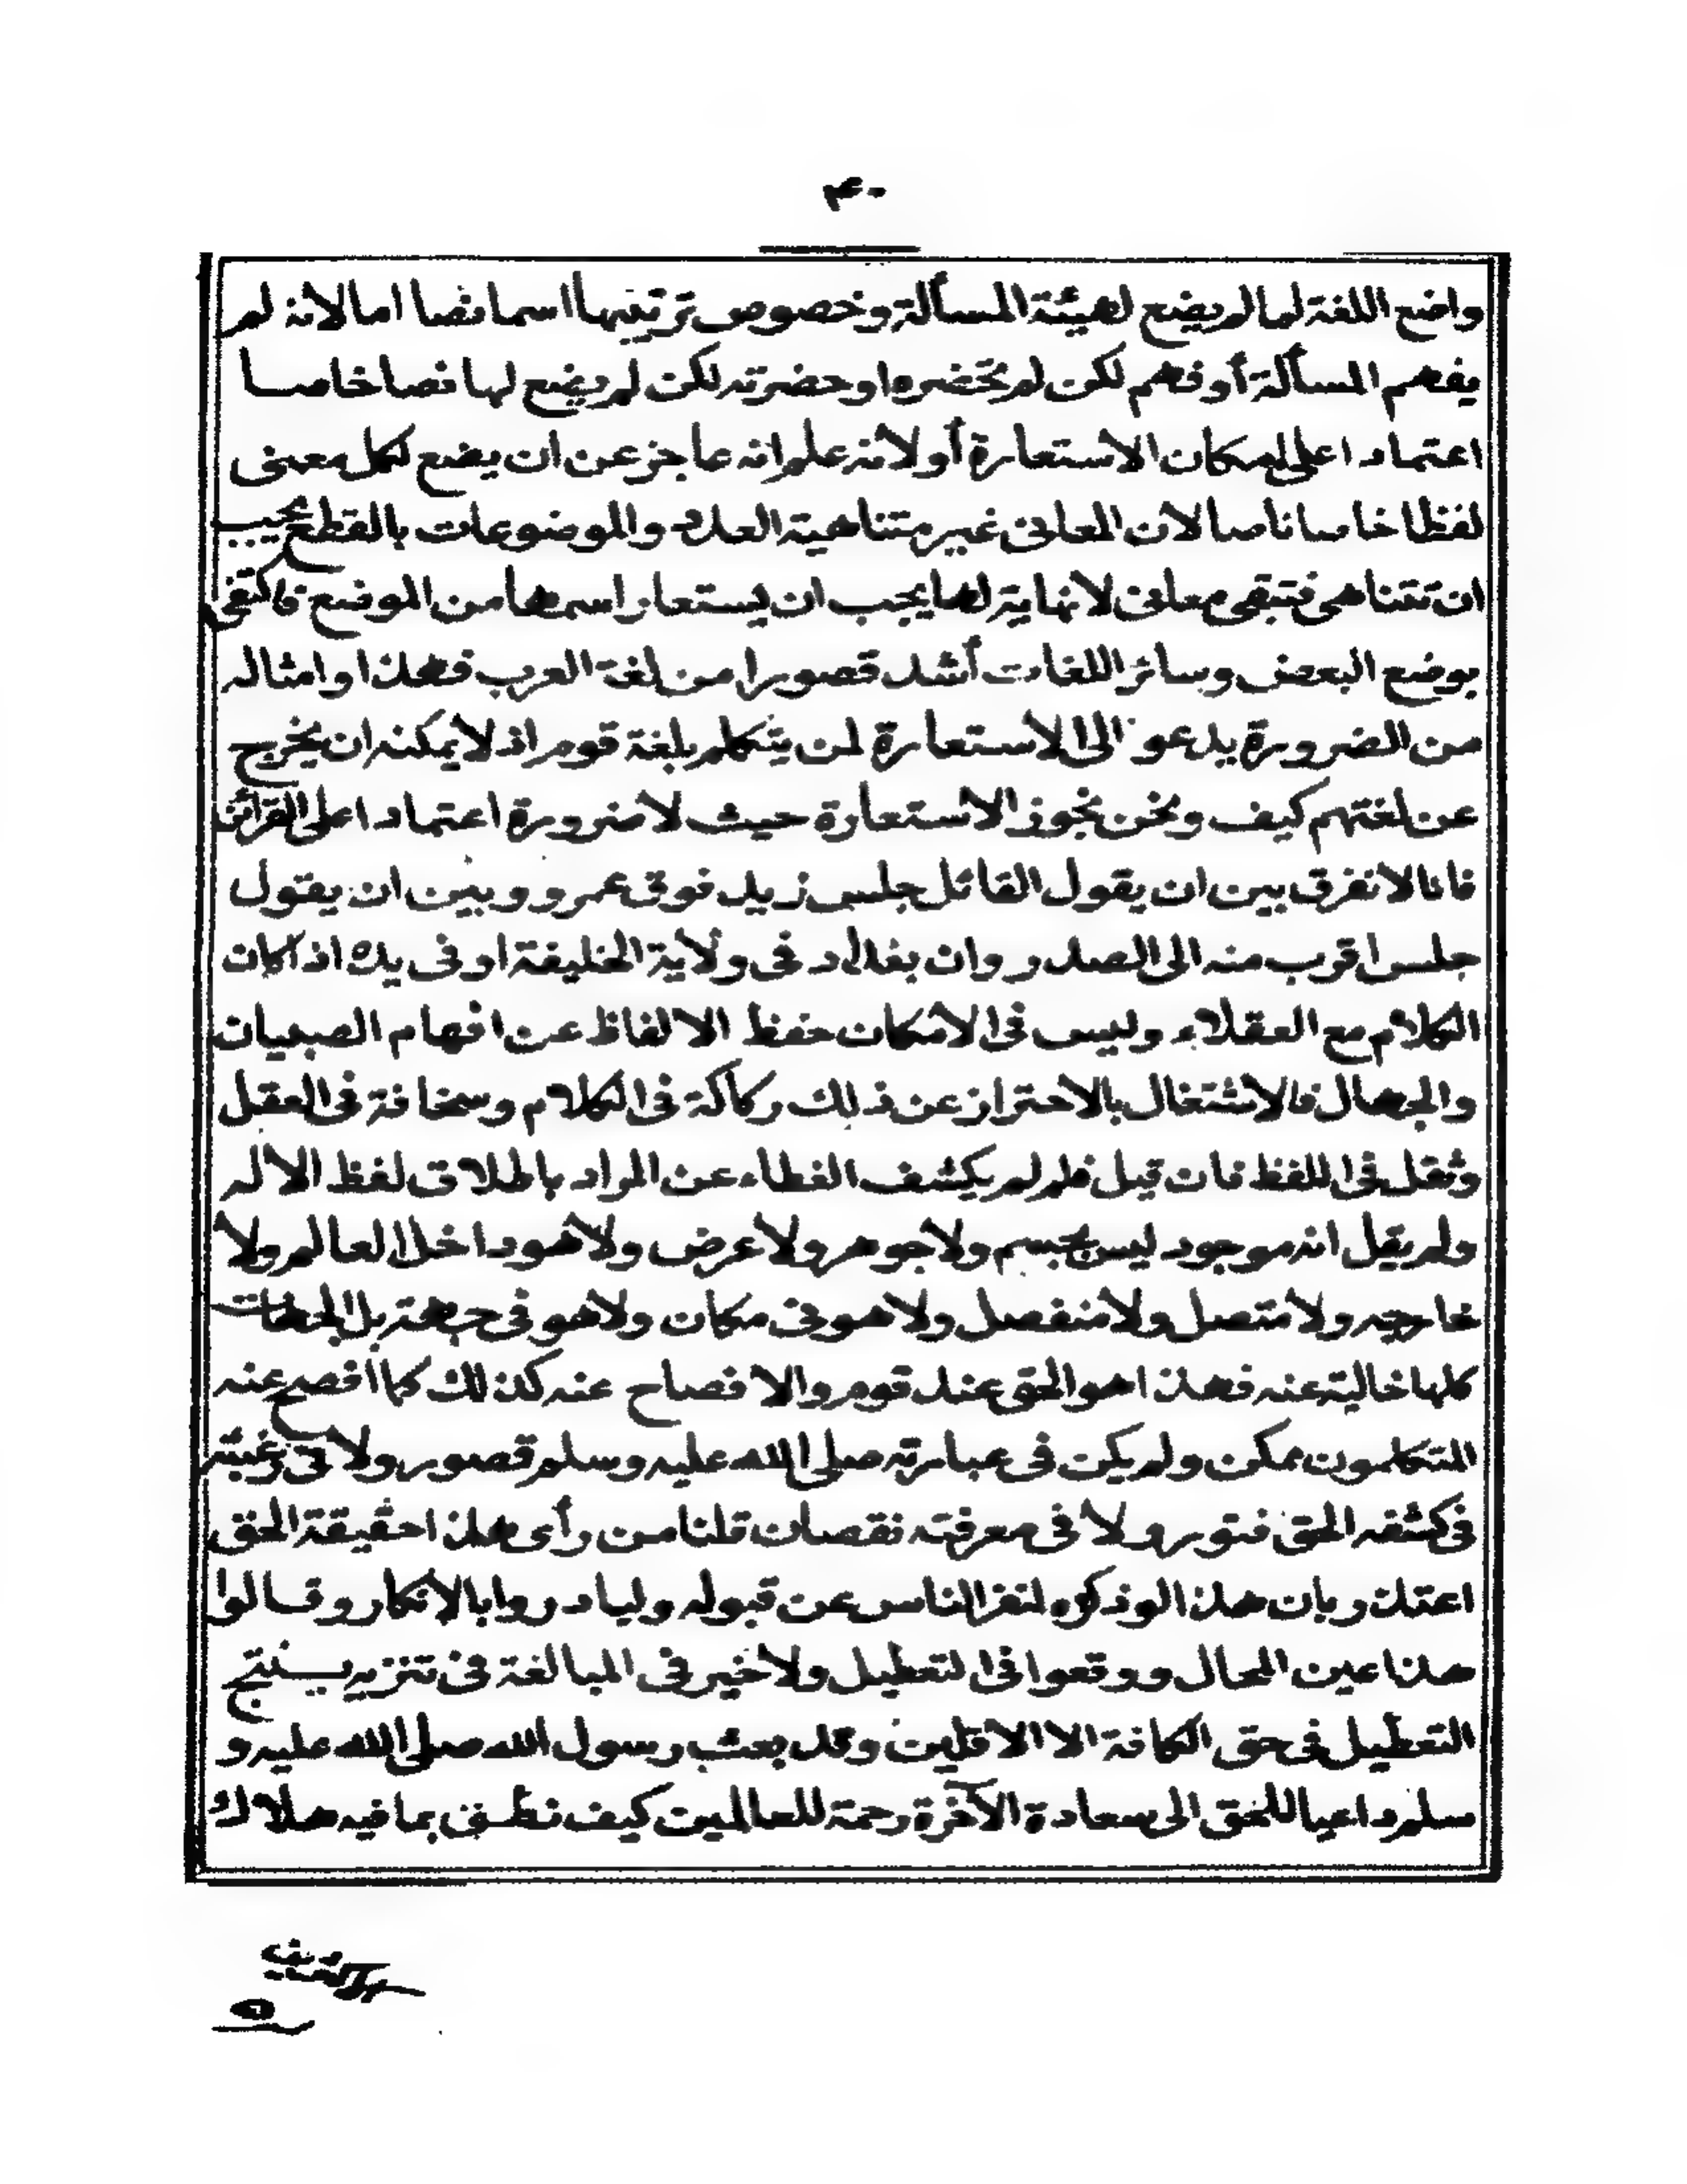 ٤٠
واضع اللغة لما لم يضع لهيئة المسألة وخصوص ترتيبها اسما نصا اما لانه لم
يفهم المسألة أو فهم لكن لم تحضره او حضرته لكن لم يضع لها نصا خاصا
اعتمادا على امكان الاستعارة أو لانه علم انه عاجز عن ان يضع لكل معنى
لفظا خاصا ناصا لان المعانى غير متناهية العدد والموضوعات بالقطع يجب
ان تتناهى فتبقى معانى لانهاية لها يجب ان يستعار اسمها من الموضع فاكتفى
بوضع البعض وسائر اللغات أشد قصورا من لغة العرب فهذا وامثاله
من الضرورة يدعو الى الاستعارة لمن يتكلم بلغة قوم اذ لا يمكنه ان يخرج
عن لغتهم كيف ونحن نجوز الاستعارة حيث لا ضرورة اعتمادا على القرائن
فانا لا نفرق بين ان يقول القائل جلس زيد فوق عمرو وبين ان يقول
جلس اقرب منه الى الصدر وان بغداد فى ولاية الخليفة او فى يده اذا كان
الكلام مع العقلاء وليس فى الامكان حفظ الالفاظ عن افهام الصبيان
والجهال فالاشتغال بالاحتراز عن ذلك ركاكة فى الكلام وسخافة فى العقل
وثقل فى اللفظ فان قيل فلم لم يكشف الغطاء عن المراد باطلاق لفظ الاله
ولم يقل انه موجود ليس بجسم ولا جوهر ولا عرض ولا هو داخل العالم ولا
خارجه ولا متصل ولا منفصل ولا هو فى مكان ولا هو فى جهة بل الجهات
كلها خالية عنه فهذا هو الحق عند قوم والافصاح عنه كذلك كما افصح عنه
المتكلمون ممكن ولم يكن فى عبارته صلى الله عليه وسلم قصور ولا فى رغبته
فى كشفه الحق فتور ولا فى معرفته نقصان قلنا من رأى هذا حقيقة الحق
اعتذر بان هذا لو ذكره لنفر الناس عن قبوله ولبادروا بالانكار وقالوا
هذا عين المحال ووقعوا فى التعطيل ولا خير فى المبالغة فى تنزيه ينتج
التعطيل فى حق الكافة الا الاقلين وقد بعث رسول الله صلى الله عليه و
سلم داعيا للخلق الى سعادة الآخرة رحمة للعالمين كيف نطق بما فيه هلاك